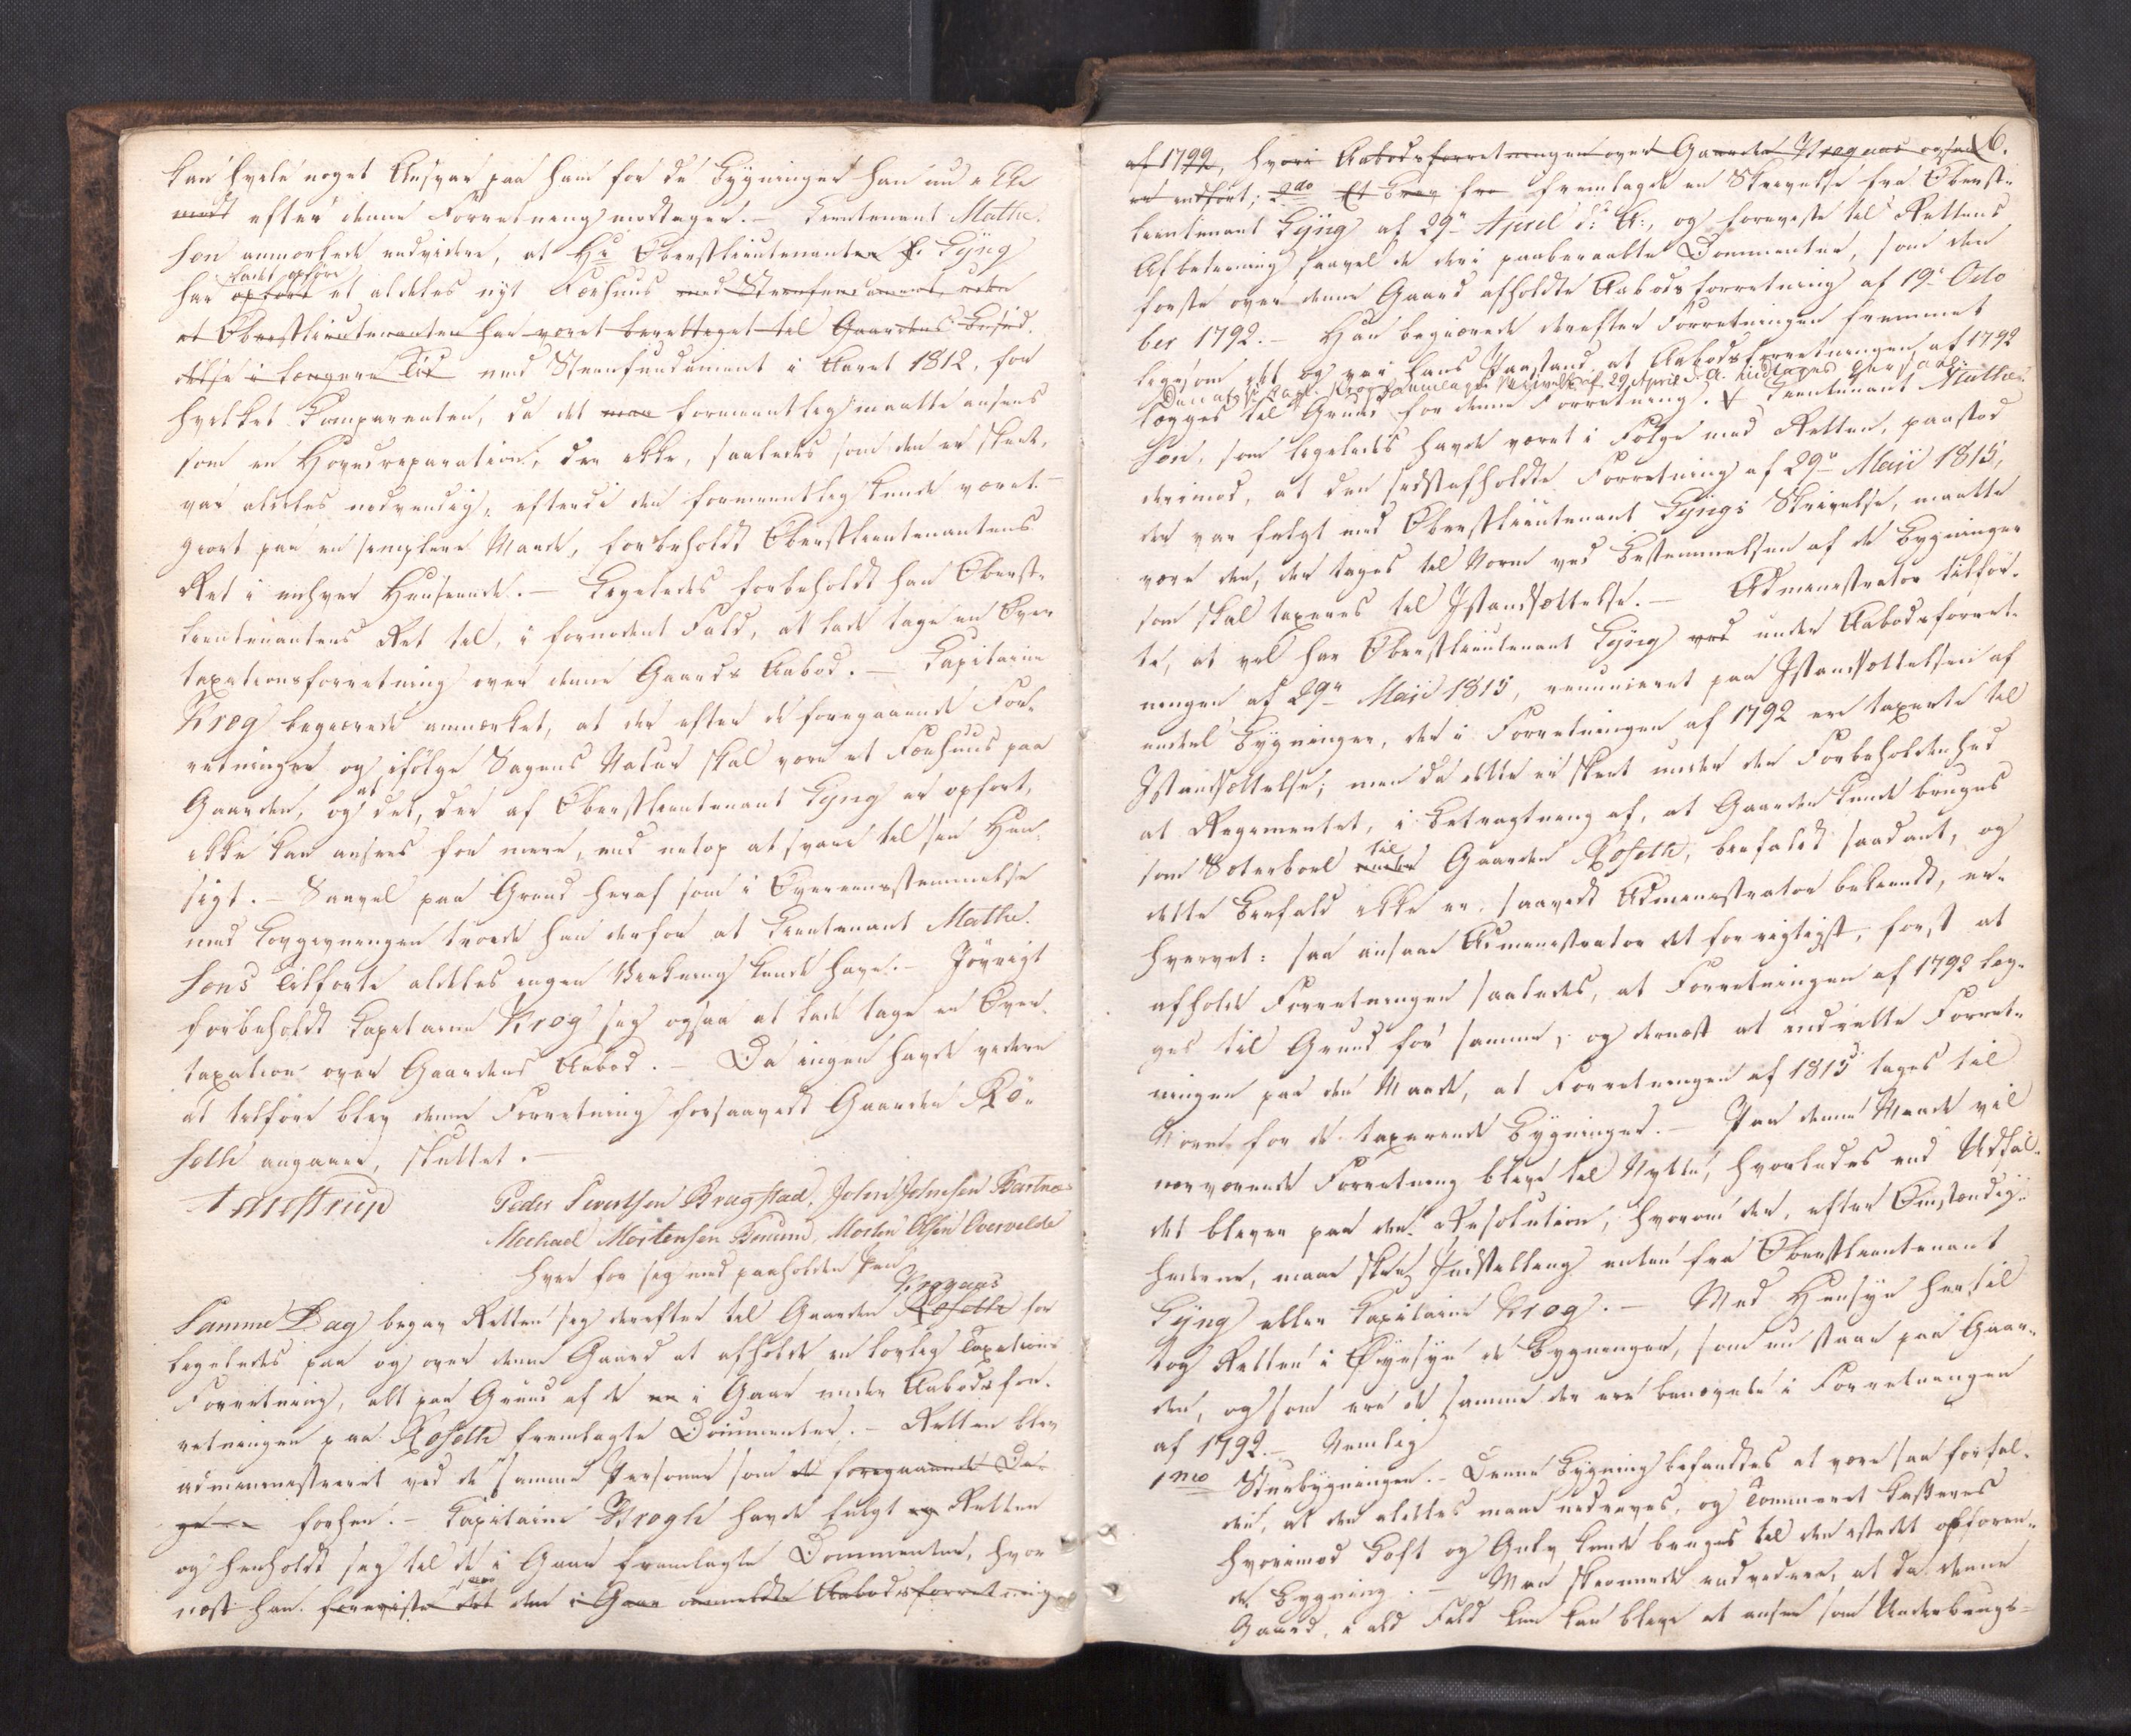 kan hvile noget Ansvar paa ham for de Bygninger han nu ikke
med efter denne Forretning modtager. – Lieutenant Mathe-
son anmærkede endvidere, at Hr Oberstlieutenanten v. Lÿng
ladet opføre
har opført et aldeles nyt Fæehuus med Steenfundament, uden
at Oberstlieutenanten har været berettiget til Gaardens Besid-
delse i længere Tid med Steenfundament i Aaret 1812, for
hvilket Komparenten, da det man formeentlig maatte ansees
som en Hovedreparation, der ikke, saaledes som den er skeet,
var aldeles nødvendig, efterdi den formeentlig kunde været
giort paa en simplere Maade, forbeholdt Oberstlieutenantens
Ret i enhver Henseende. – Ligeledes forbeholdt han Oberst-
lieutenantens Ret til, i fornødent Fald, at lade tage en Over-
taxationsforretning over denne Gaards Aabod. – Kapitaine
Krog begiærede anmærket, at der efter de foregaaende For-
retninger og ifølge Sagens Natur skal være et Fæehuus paa
Gaarden, og at det, der af Oberstlieutenant Lÿng er opført,
ikke kan ansees for mere, end netop at svare til sin Hen-
sigt. – Saavel paa Grund heraf som i Overeensstemmelse
med Lovgivningen troede han derfor at Lieutenant Mathe-
sons Tilførte aldeles ingen Virkning kunde have. – Iøvrigt
forbeholdt Kapitaine Krog sig ogsaa at lade tage en Over-
taxation over Gaardens Aabod. – Da ingen havde videre
at tilføre blev denne Forretning forsaavidt Gaarden Rø-
seth angaaer, sluttet. –
Peder Sivertsen Bragstad, John Johnsen Bartnes
Michael Mortensen Bmund, Morten Olsen Overvelde
hver for sig med paaholden Pen
Krognæs
Samme Dag begav Retten sig derefter til Gaarden Røseth for
ligeledes paa og over denne Gaard at afholde en lovlig Taxations
Forretning, alt paa Grund af de en i Gaar under Aabodsfor-
retningen paa Røseth fremlagte Documenter. – Retten blev
administreret ved de samme Personer som de foregaaende Da-
ge forhen. – Kapitaine Krogh havde fulgt og Retten
og henholdt sig til de i Gaar fremlagte Dommenter, hvor
næst han foreviste det den i Gaar anmeldte Aabodsforretning
6.
af 1792, hvori Aabodsforretningen over Gaarden Krognæs ogsaa
er indført; 2do Et Brev fra fremlagde en Skrivelse fra Oberst-
lieutenant Lÿng af 29de April d: A:, og foreviste til Rettens
Afbetieining saavel de deri paaberaabte Documenter, som den
første over denne Gaard afholdte Aabodsforretning af 19de Octo
ber 1792. – Han begiærede derefter Forretningen fremmet
ligesom det og var hans Paastand, at Aabodsforretningen af 1792
lægges til Grund for denne Forretning. Lieutenant Mathe-
son, som ligeledes havde været i Følge med Retten, paastod
derimod, at den sidstafholdte Forretning af 29de Maji 1815,
der var fulgt med Oberstlieutenant Lÿngs Skrivelse, maatte
være den, der tages til Norm ved Bestemmelsen af de Bygninger
som skal taxeres til Istandsættelse. – Administrator tilfør-
te, at vel har Oberstlieutenant Lÿng ved under Aabodsforret-
ningen af 29de Maji 1815, renuncieret paa Istandsættelsen af
endeel Bygninger, der i Forretningen af 1792 ere taxerte til
Istandsættelse; men da dette er skeet under den Forbeholdenhed
at Regimentet, i Betragtning af, at Gaarden kunde bruges
som Sæterboel under til Gaarden Røseth, biefaldt saadant, og
dette Biefald ikke er, saavidt Administrator bekiendt, er-
hvervet: saa ansaae Administrator det for rigtigst, først at
afholde Forretningen saaledes, at Forretningen af 1792 læg-
ges til Grund for samme, og dernæst at indrette Forret-
ningen paa den Maade, at Forretningen af 1815 tages til
Norm for de taxerende Bygninger. – Paa denne Maade vil
nærværende Forretning blive til Nytte, hvorledes end Udfal-
det bliver paa den Resolution, hvorom der, efter Omstændig-
hederne, maae skee Indstilling enten fra Oberstlieutenant
Lÿng eller Kapitaine Krog. – Med Hensyn hertil
tog Retten i Øiesyn de Bygninger, som nu staae paa Gaar-
den, og som ere de samme der ere benævnte i Forretningen
af 1792. – Nemlig
1mo Stuebygningen. – Denne Bygning befandtes at være saa forfal-
den, at den aldeles maae nedrives, og Tømmeret kasseres
hvorimod Loft og Gulv kunde bruges til den istedet opføren-
de Bygning. – Man skiønnede endvidere, at da denne
Gaard, i ald Fald kun kan blive at ansee som Underbrugs-